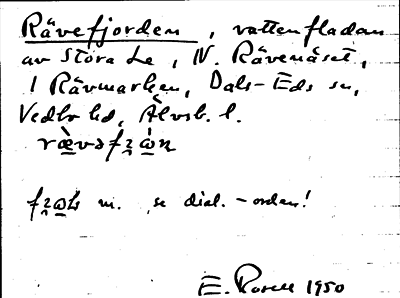 Rävefjorden, vattenfladan
av Stora Le, N. Rävenäset,
i Rävmarken, Dals-Eds sn,
Vedbo hd, Älvsb. l.
m. se dial. -orden!
E. Rosell 1950